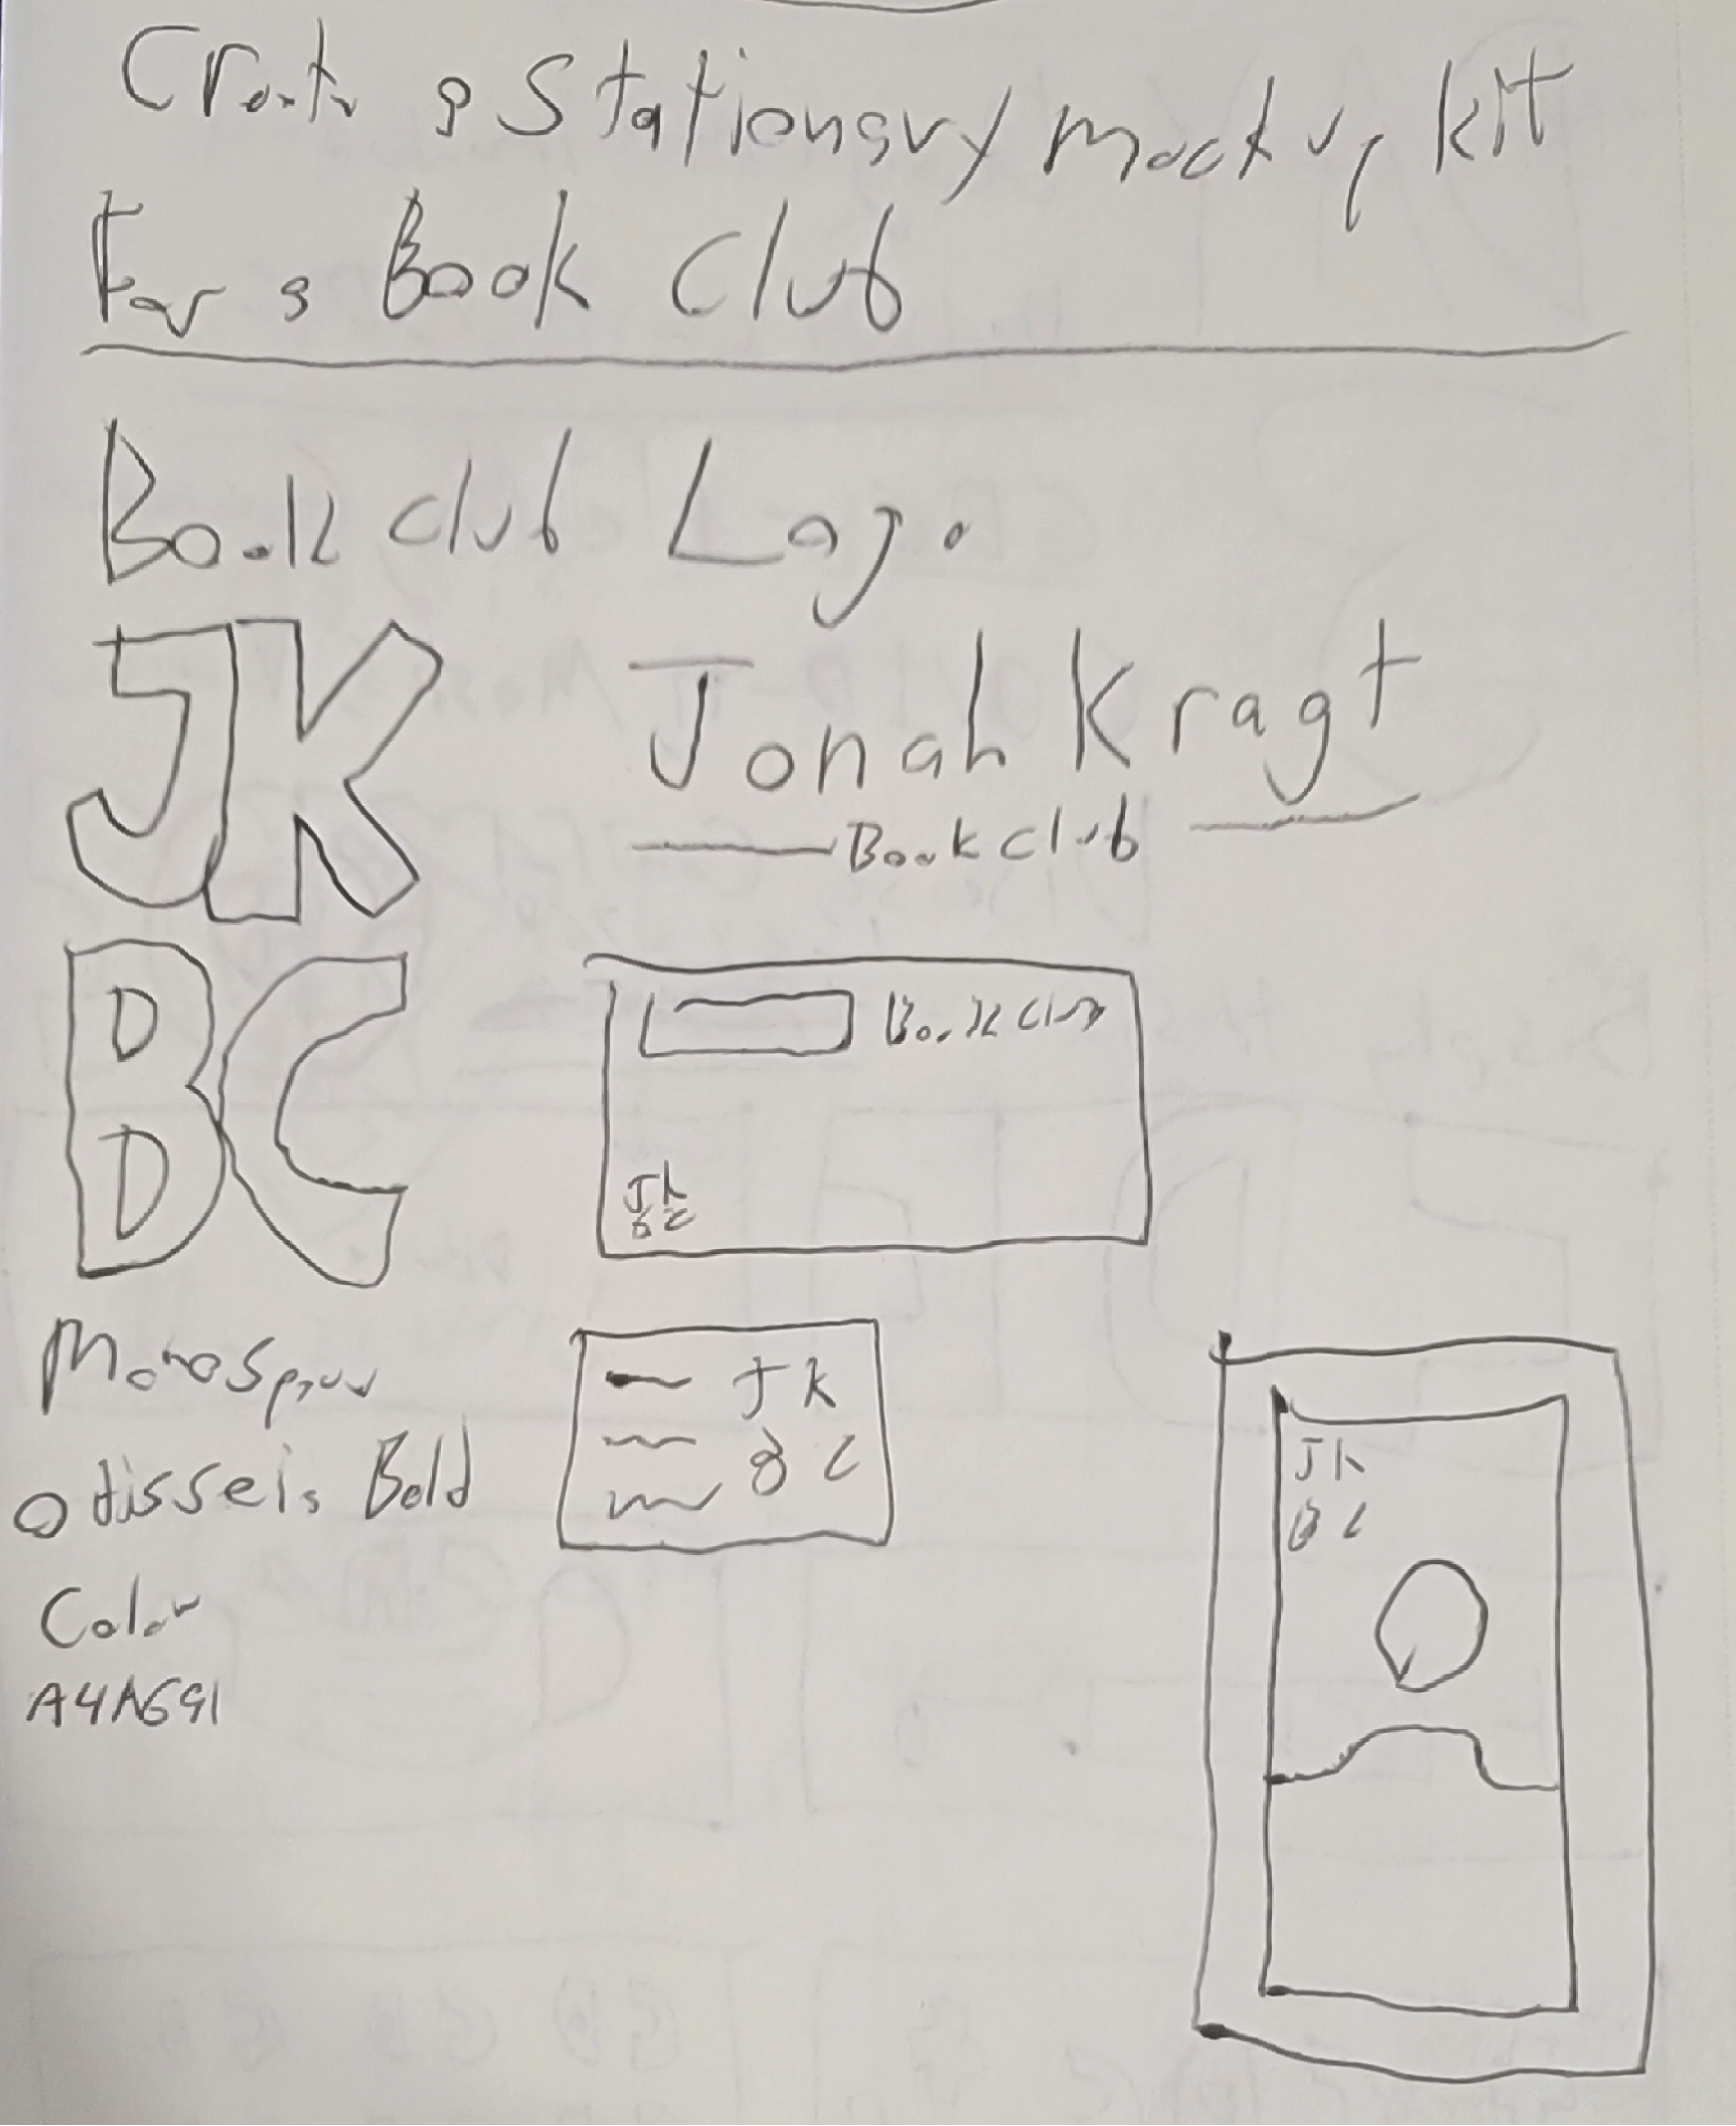 Create a Stationary mockup kit
For a Book Club
Book club Logo
JK
BC
Jonah Kragt
Book club
Book club
JK
BC
Monospace
Bold
JK
BC
Color
A4A691
JK
BC